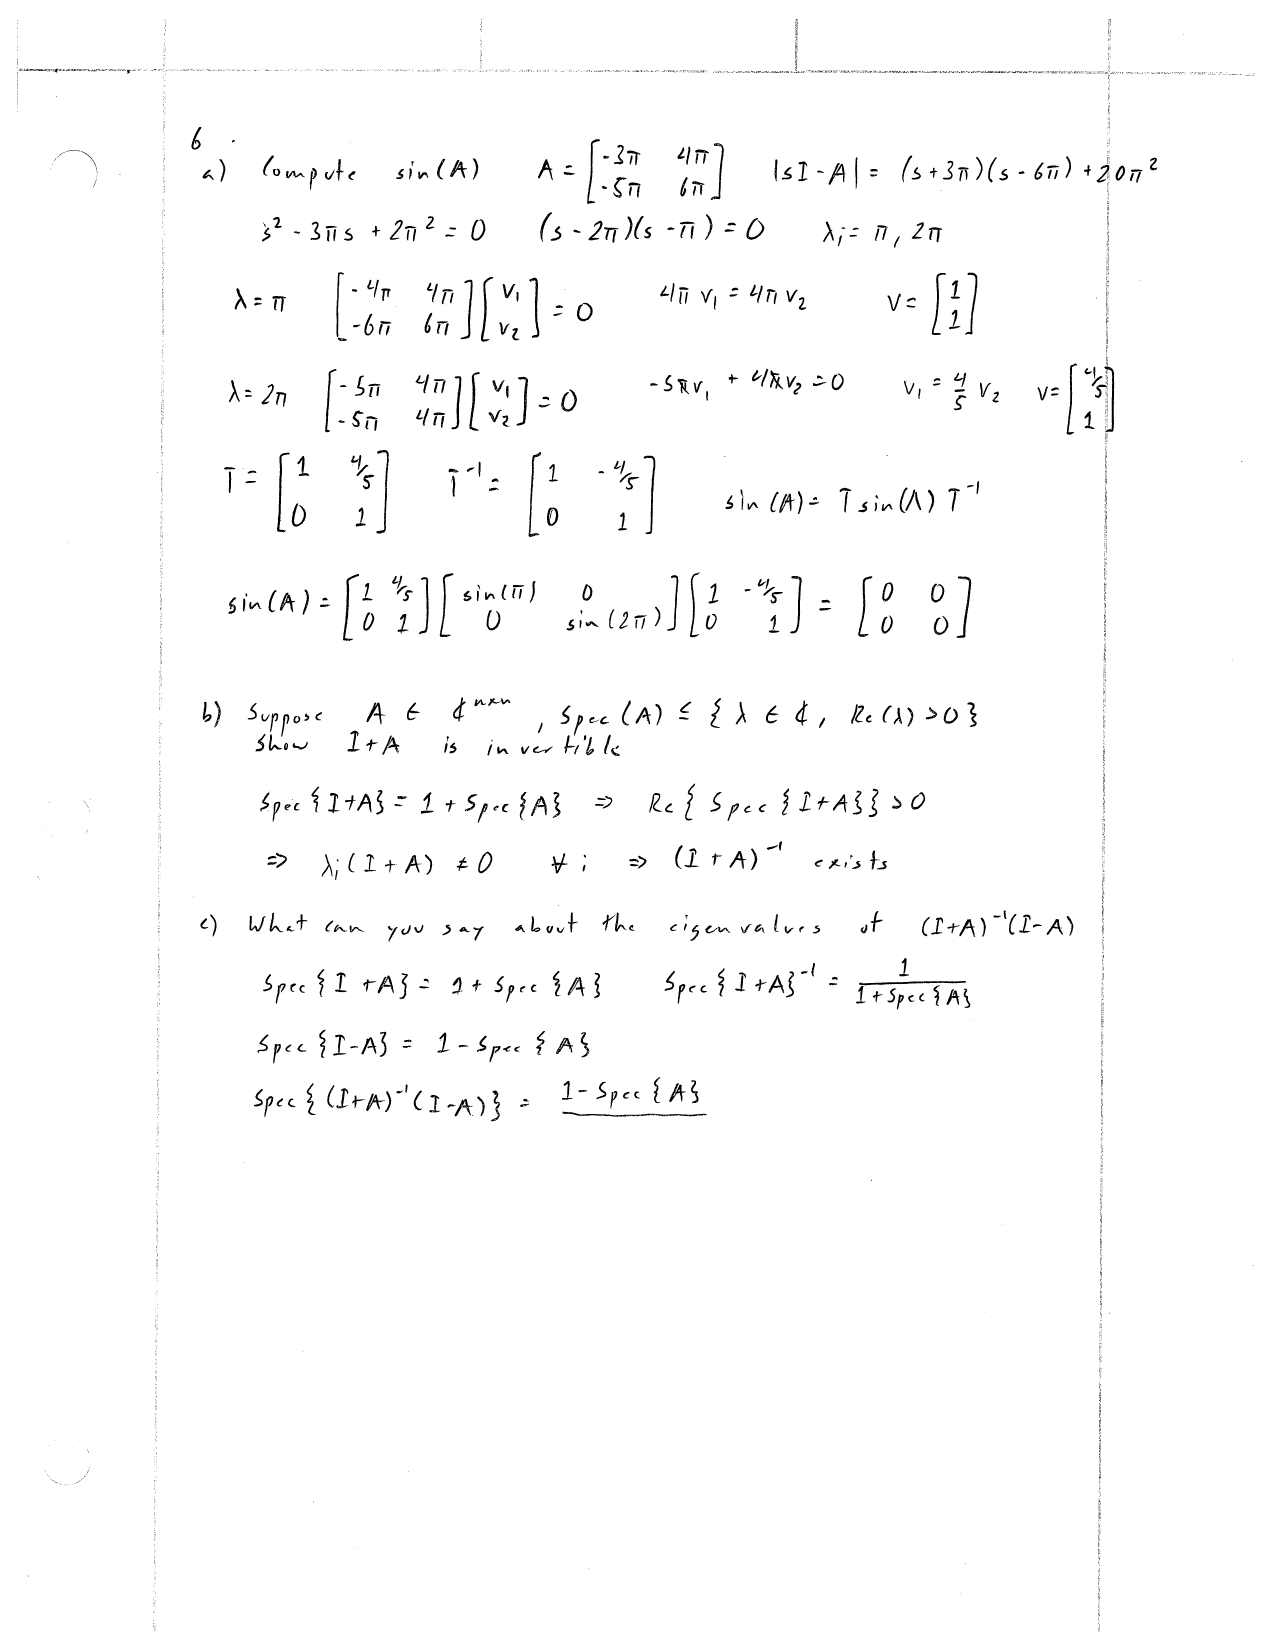 6.
a) Compute sin(A) A = [-3π 4π; -5π 6π] |sI-A| = (s+3π)(s-6π)+20π²
s² - 3πs + 2π² = 0 (s-2π)(s-π) = 0 λi = π, 2π
λ=π [-4π 4π; -6π 6π][v1; v2] = 0 4π v1 = 4π v2 v = [1; 1]
λ=2π [-5π 4π; -5π 4π][v1; v2] = 0 -5πv1 + 4πv2 = 0 v1 = 4/5 v2 v = [4/5; 1]
T = [1 4/5; 0 1] T⁻¹ = [1 -4/5; 0 1] sin(A) = T sin(Λ) T⁻¹
sin(A) = [1 4/5; 0 1][sin(π) 0; 0 sin(2π)][1 -4/5; 0 1] = [0 0; 0 0]
b) Suppose A ∈ ℂⁿˣⁿ, Spec(A) ≤ {λ ∈ ℂ, Re(λ) > 0}
Show I+A is invertible
Spec{I+A} = 1 + Spec{A} ⇒ Re{Spec{I+A}} > 0
⇒ λi(I+A) ≠ 0 ∀ i ⇒ (I+A)⁻¹ exists
c) What can you say about the eigenvalues of (I+A)⁻¹(I-A)
Spec{I+A} = 1 + Spec{A} Spec{I+A}⁻¹ = 1/(1+Spec{A})
Spec{I-A} = 1 - Spec{A}
Spec{(I+A)⁻¹(I-A)} = 1-Spec{A}